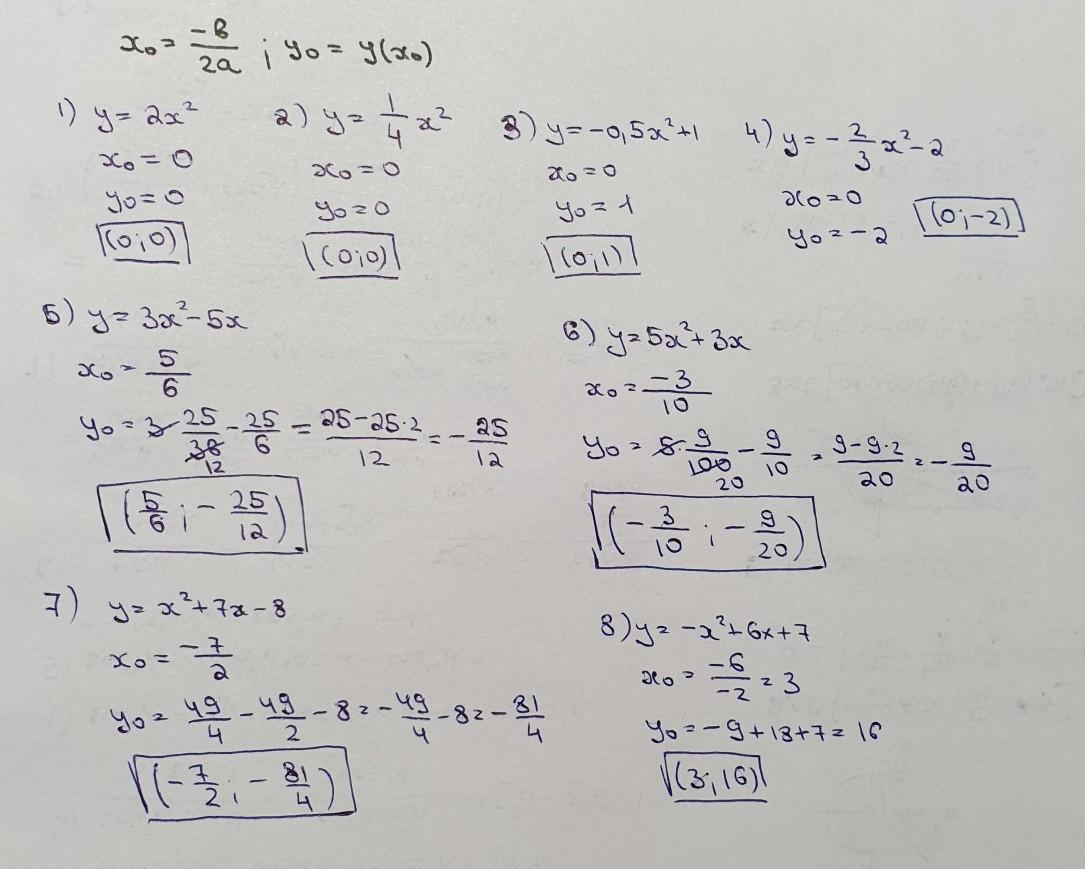 x₀ = -b/2a ; y₀ = y(x₀)
1) y = 2x²
x₀ = 0
y₀ = 0
(0;0)
2) y = 1/4 x²
x₀ = 0
y₀ = 0
(0;0)
3) y = -0,5x²+1
x₀ = 0
y₀ = 1
(0;1)
4) y = -2/3 x² - 2
x₀ = 0
y₀ = -2
(0;-2)
5) y = 3x² - 5x
x₀ = 5/6
y₀ = 3 · 25/36 12 - 25/6 = 25-25·2/12 = -25/12
(5/6 ; -25/12)
6) y = 5x² + 3x
x₀ = -3/10
y₀ = 5 · 9/100 20 - 9/10 = 9-9·2/20 = -9/20
(-3/10 ; -9/20)
7) y = x² + 7x - 8
x₀ = -7/2
y₀ = 49/4 - 49/2 - 8 = -49/4 - 8 = -81/4
(-7/2 ; -81/4)
8) y = -x² + 6x + 7
x₀ = -6/-2 = 3
y₀ = -9 + 18 + 7 = 16
(3;16)